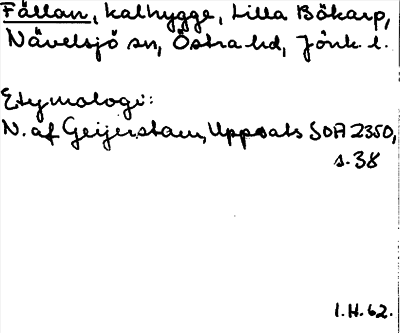 Fällan, kalhygge, Lilla Bökarp,
Nävelsjö sn, Östra hd, Jönk. l.
Etymologi:
N. af Geijerstam, Uppsats SOA 2350,
s. 38
I.H.62.